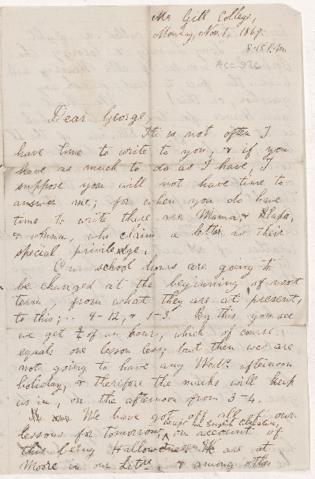 Mc Gill College,
Monday, Nov. 1, 1869.
8.15 P.M.
Dear George,
It is not often I
have time to write to you, & if you
have as much to do as I have, I
suppose you will not have time to
answer me; for when you do have
time to write there are Mama, & Papa,
& Anna, who claim a letter as their
special privilege.
Our school hours are going to
be changed at the beginning of next
term, from what they are at present,
to this;-- 9-12, & 1-3. By this you see
we get ¾ of an hour, which of course,
equals one lesson less; but then we are
not going to have any Wed. afternoon
holiday, & therefore the marks will keep
us in, on the afternoon from 3-4.
We have got off all of our
lessons for tomorrow, except the English Literature, on account of
this being Hallowe'en. We are at
Moore in our Lit., & among other